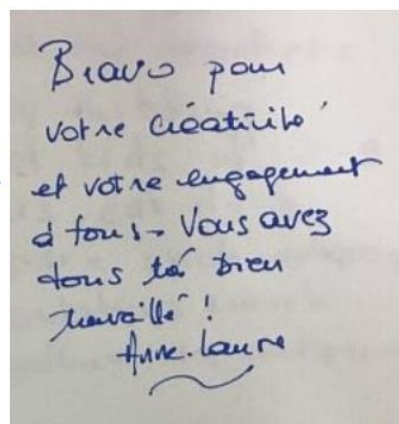 Bravo pour
votre créativité
et votre engagement
à tous. Vous avez
tous bien
travaillé !
Anne-Laure